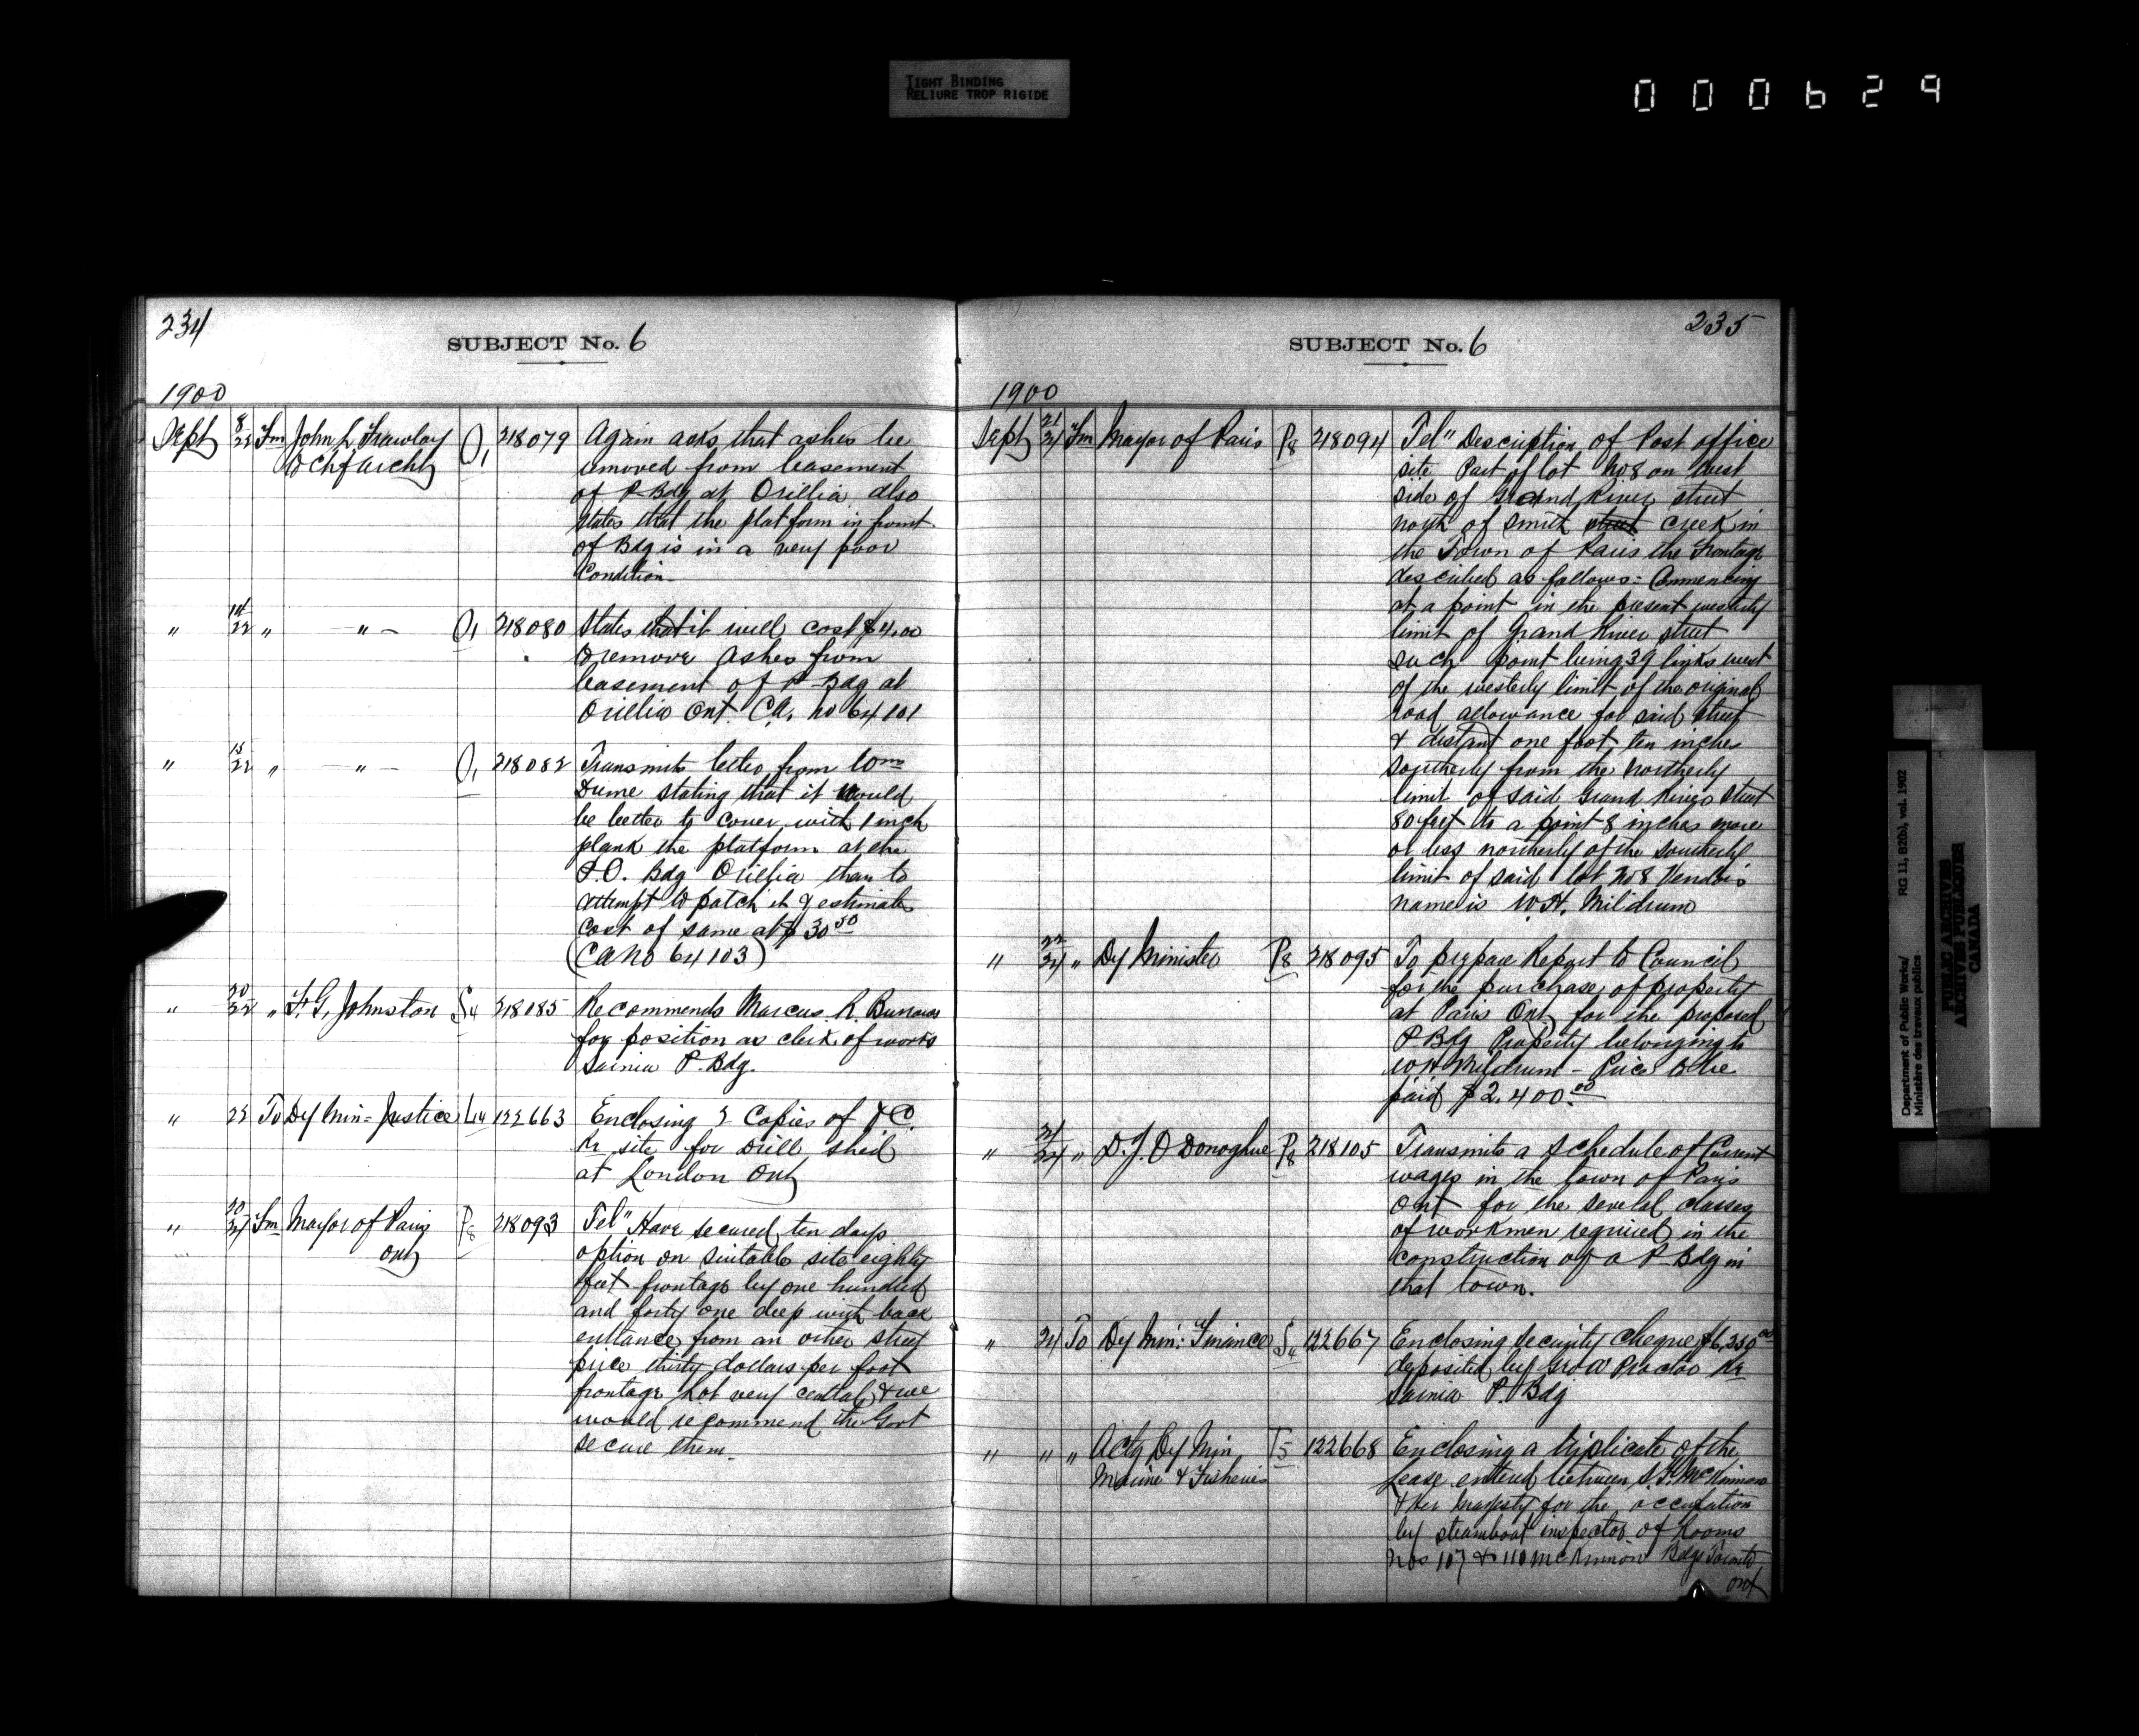 TIGHT BINDING
RELIURE TROP RIGIDE
000629
234
SUBJECT No. 6
1900
Sept 8/22 Fm John L Frawley O1 218079 Again asks that ashes be
to Chf Archt removed from basement
of P-Bdg at Orillia also
states that the platform in front
of Bdg is in a very poor
Condition-
" 14/22 " -"- O1 218080 States that it will cost $4.00
to remove ashes from
basement of P-Bdg at
Orillia Ont. C.A. No 64101
" 15/22 " -"- O1 218082 Transmits letter from
stating that it would
be better to cover with 1 inch
plank the platform at the
P.O. Bdg Orillia than to
attempt to patch it & estimates
cost of same at $30.50
(CA No 64103)
" 20/22 " F. G. Johnston S4 218085 Recommends Marcus R. Burrows
for position as clerk of works
Sarnia P. Bdg.
" 22 To Dy Min= Justice L14 122663 Enclosing 2 Copies of
Re site for Drill shed
at London Ont
" 20/24 Fm Mayor of Paris P8 218093 Tel" Have secured ten days
Ont option on suitable site eighty
feet frontage by one hundred
and forty one deep with back
entrance from an other street
price thirty dollars per foot
frontage lot very central & we
would recommend the Govt
secure them-
235
SUBJECT No. 6
1900
Sept 21/24 Fm Mayor of Paris P8 218094 Tel" Description of Post office
site Part of lot No 8 on west
side of Grand River street
north of Smith street creek in
the Town of Paris the frontage
described as follows:- Commencing
at a point in the present westerly
limit of Grand River street
such point being 39 links west
of the westerly limit of the original
road allowance for said street
& distant one foot ten inches
southerly from the northerly
limit of said Grand River street
80 feet to a point 8 inches more
or less northerly of the southerly
limit of said lot No 8 Vendor's
name is W. H. Mildrum
" 22/24 " Dy Minister P8 218095 To prepare Report to Council
for the purchase of property
at Paris Ont for the proposed
P-Bdg Property belonging to
W H Mildrum - Price to be
paid $2,400.00
" 21/24 " D. J. O'Donoghue P8 218105 Transmits a schedule of Current
wages in the town of Paris
Ont for the several classes
of workmen required in the
construction of a P-Bdg in
that town.
" 24 To Dy Min: Finance S4 122667 Enclosing security cheque $6,250.00
deposited by Geo A Proctor Re
Sarnia P. Bdg
" " " Actg Dy Min T5 122668 Enclosing a triplicate of the
Marine & Fisheries lease entered between S. F. McKinnon
& Her Majesty for the occupation
by steamboat inspector of Rooms
Nos 107 & 110 McKinnon Bdg Toronto
Ont
Department of Public Works/ RG 11, B2(b), vol. 1902
Ministère des travaux publics
PUBLIC ARCHIVES
ARCHIVES PUBLIQUES
CANADA